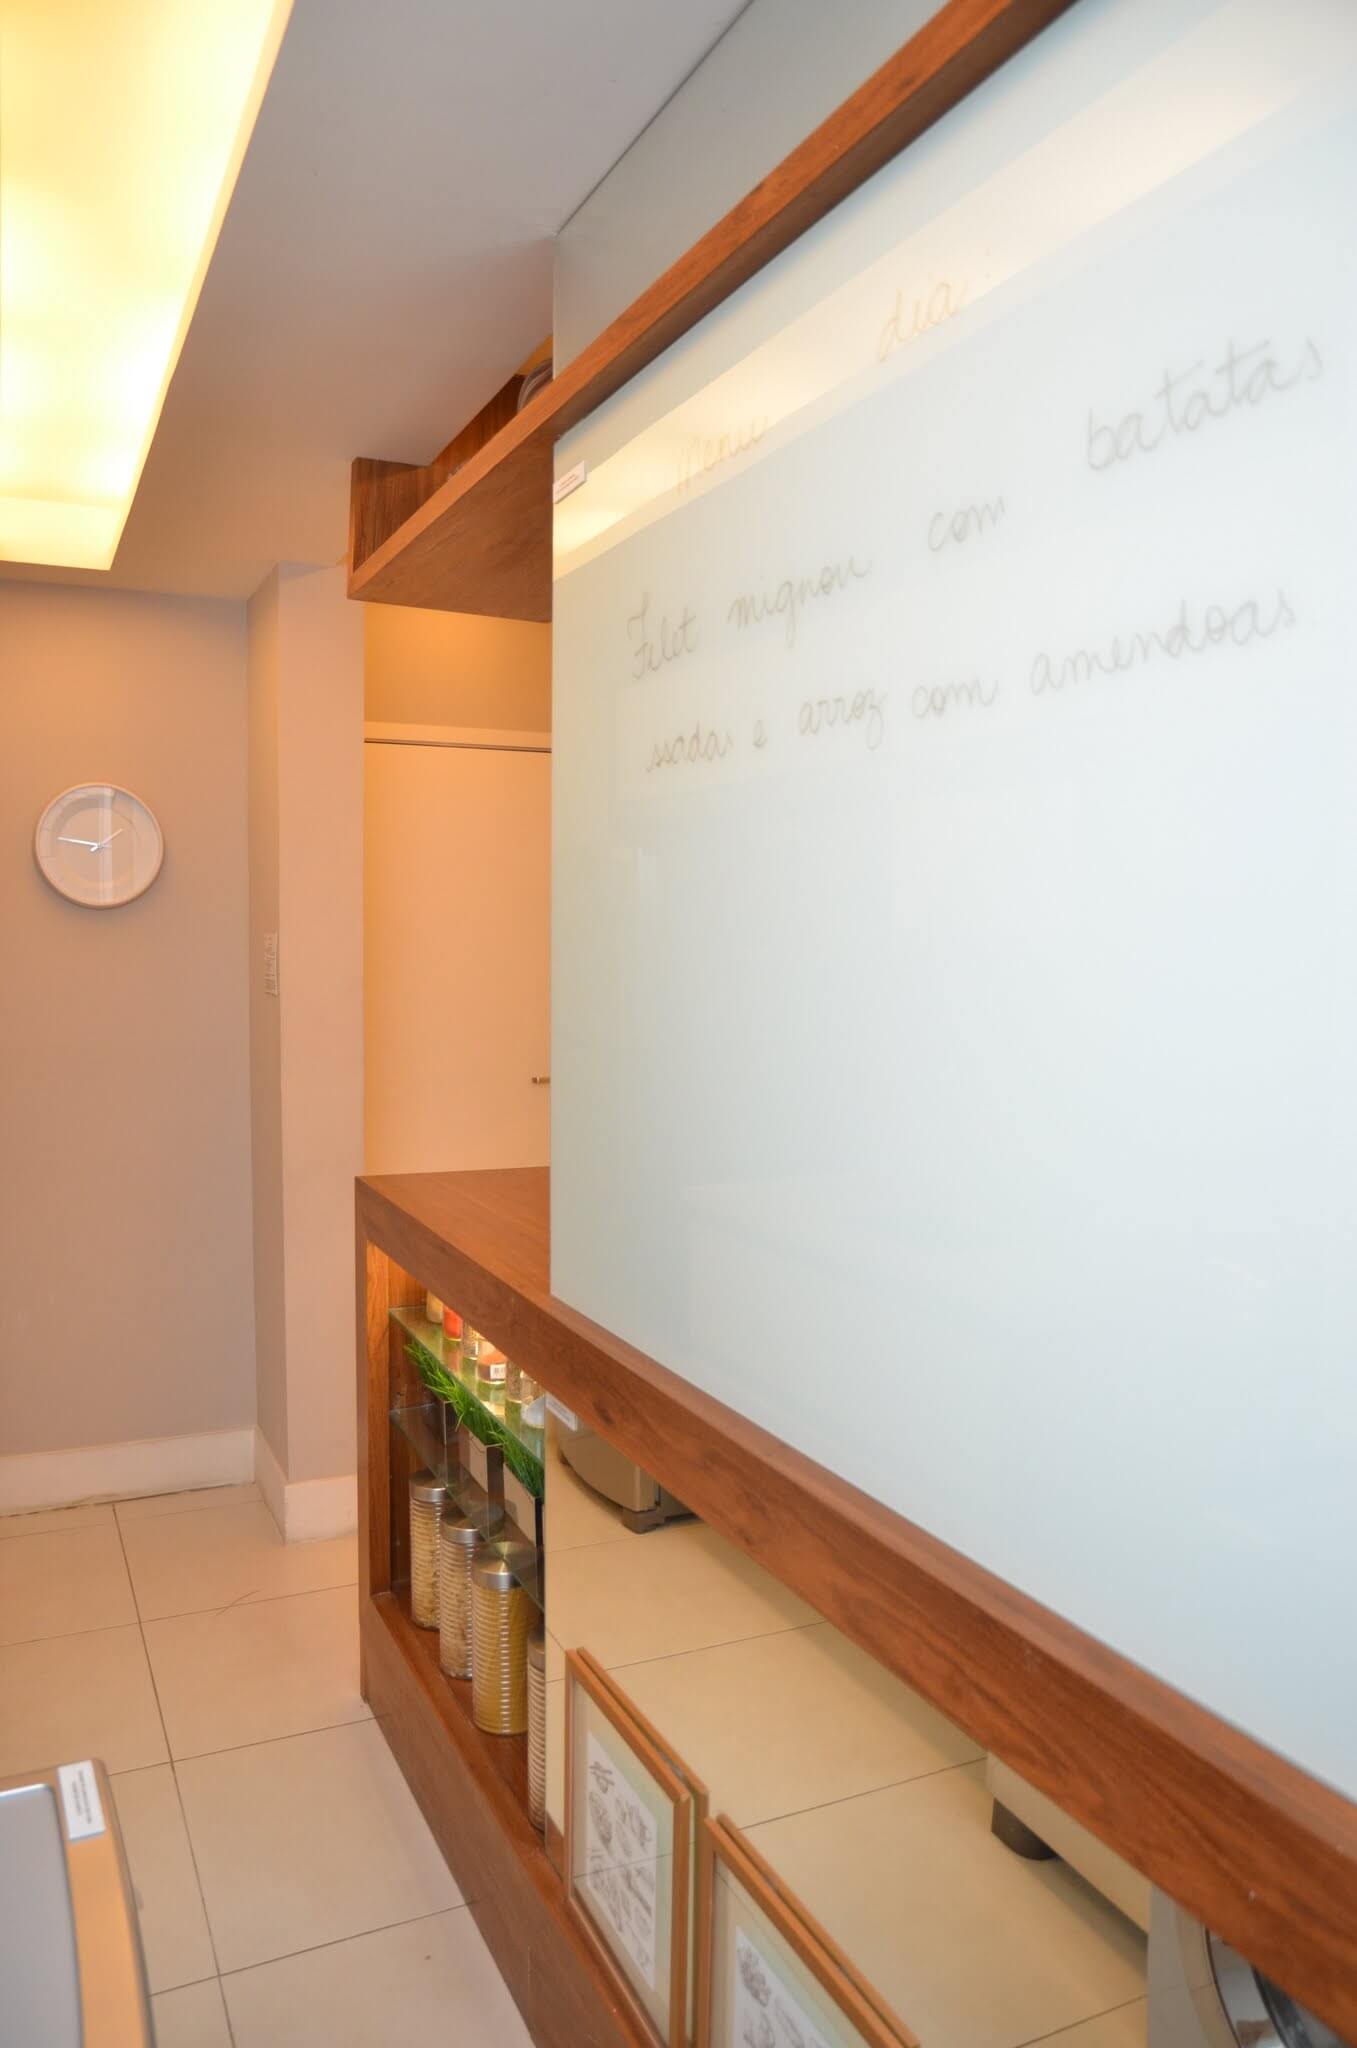 Menu dia:
Filet mignon com batatas
ssadas e arroz com amendoas.